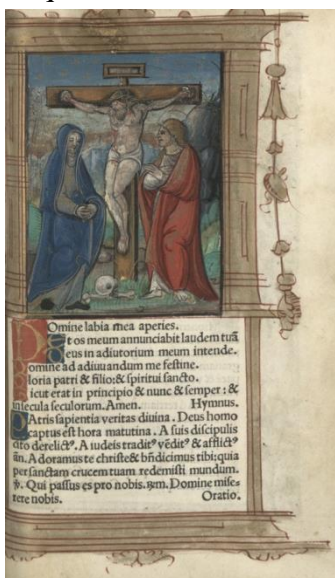 Domine labia mea aperies.
Et os meum annunciabit laudem tuã
Deus in adiutorium meum intende.
Domine ad adiuuandum me festine.
Gloria patri & filio: & spiritui sancto.
Sicut erat in principio & nunc & semper: &
in secula seculorum. Amen. Hymnus.
PAtris sapientia veritas diuina. Deus homo
captus est hora matutina. A suis discipulis
cito derelictꝰ. A iudeis traditꝰ vẽditꝰ & afflictꝰ
añ. Adoramus te christe & bñdicimus tibi: quia
per sanctam crucem tuam redemisti mundum.
℣. Qui passus es pro nobis. Domine mise-
rere nobis. Oratio.